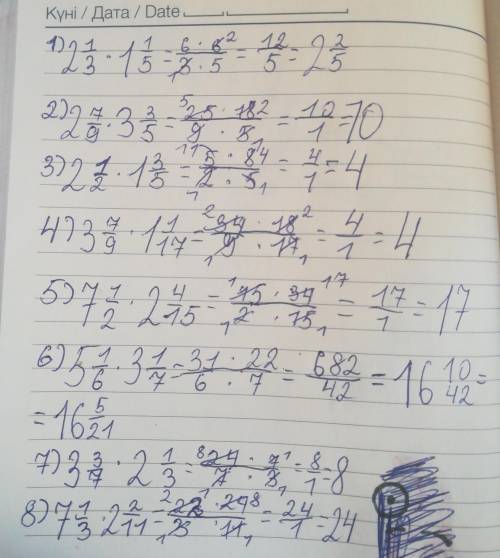 Күні / Дата / Date
1) 2 1/3 · 1 1/5 = 6 · 6 2 / 1 3 · 5 = 12/5 = 2 2/5
2) 2 7/9 · 3 3/5 = 5 25 · 18 2 / 9 · 5 1 = 10/1 = 10
3) 2 1/2 · 1 3/5 = 1 5 · 8 4 / 1 2 · 5 1 = 4/1 = 4
4) 3 7/9 · 1 1/17 = 2 34 · 18 2 / 1 9 · 17 1 = 4/1 = 4
5) 7 1/2 · 2 4/15 = 1 15 · 34 17 / 1 2 · 15 1 = 17/1 = 17
6) 5 1/6 · 3 1/7 = 31 · 22 / 6 · 7 = 682/42 = 16 10/42 =
= 16 5/21
7) 3 3/7 · 2 1/3 = 8 24 · 7 1 / 7 · 3 1 = 8/1 = 8
8) 7 1/3 · 2 2/11 = 2 22 · 24 8 / 1 3 · 11 1 = 24/1 = 24